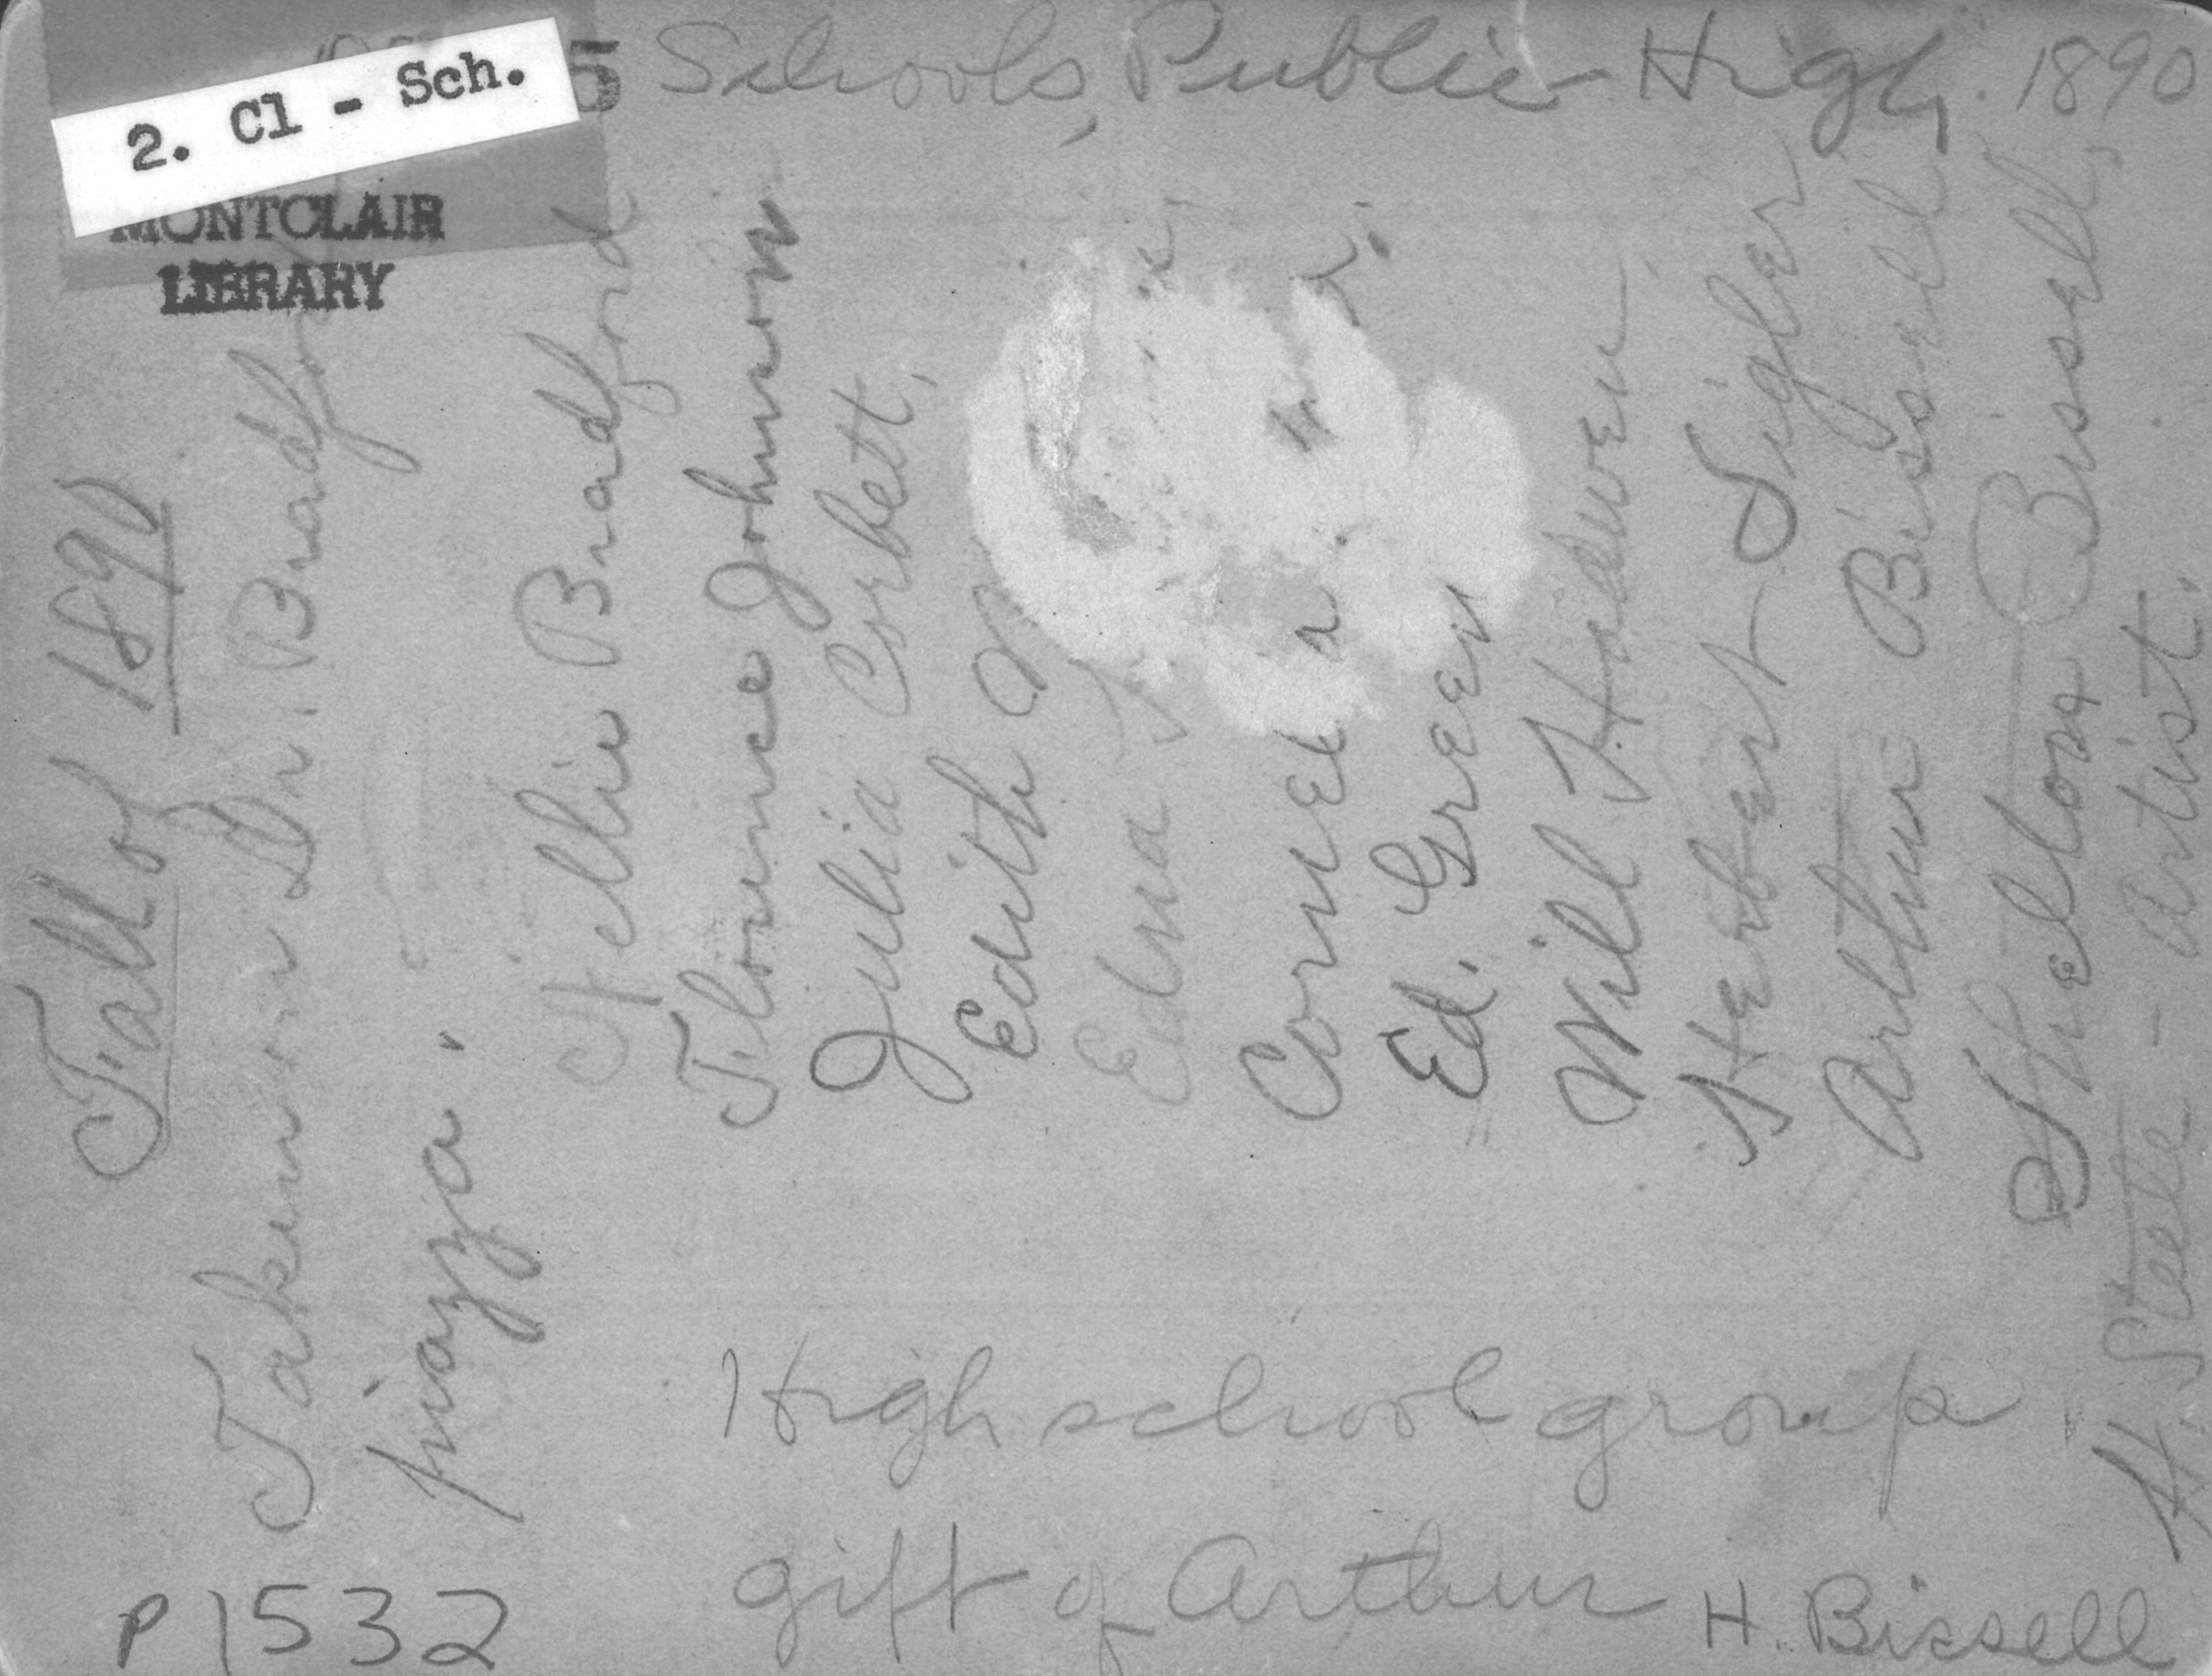 2. Cl - Sch.
5 Schools, Public High. 1890
MONTCLAIR
LIBRARY
Fall of 1890
Taken on Dr. Bradford
piazza.
Nellie Bradford
Florence Johnson
Julia Corbett,
Edith
Edna
Ed. Green
Will Hadwen
Herbert Sigler
Arthur Bissell
Shelton Bissell,
H. Steele - Artist.
High school group
gift of Arthur H. Bissell
P1532